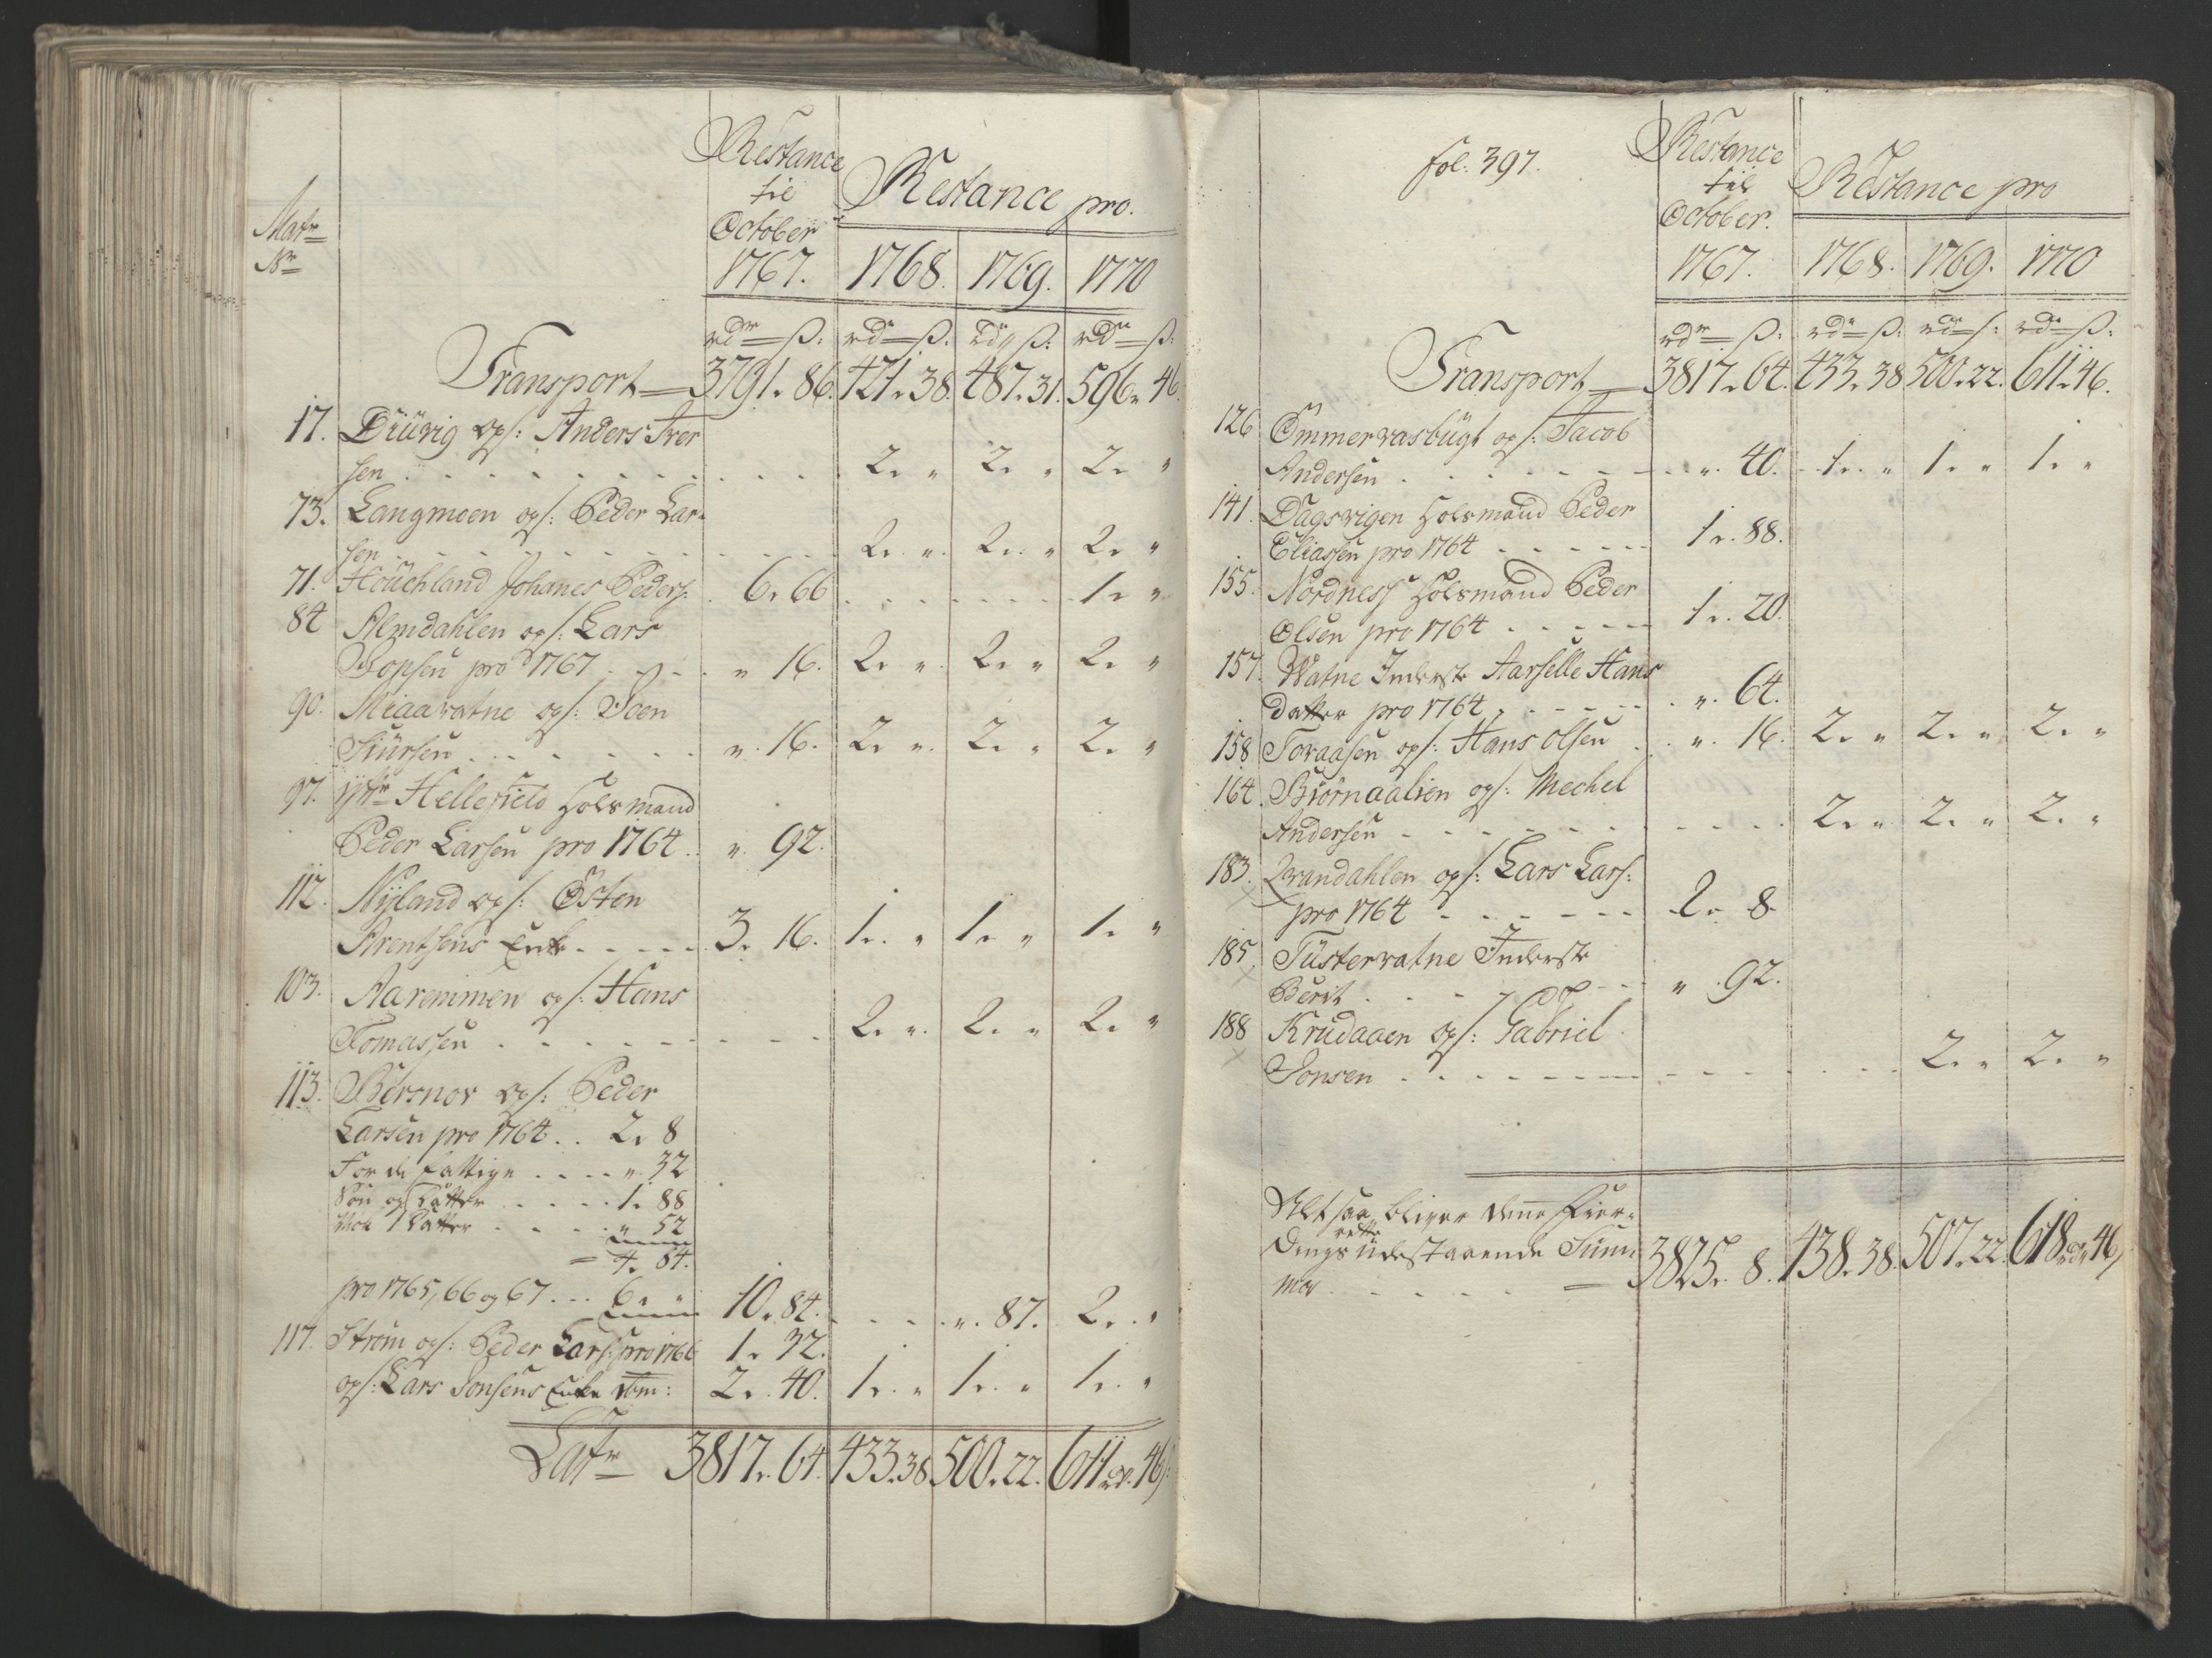 Matr
No
Restance
til
October
1767.
Restance pro.
1768. 1769. 1770
rdr ß: rdr ß: rdr ß: rdr ß:
Transport 3791. 86. 421. 38. 487. 31. 596. 46.
17. Diüvig ops: Anders Iver
sen . . . . 2. " 2. " 2. "
73. Langmoen ops: Peder Lar-
sen . . . . 2. " 2. " 2. "
71. Houchland Johanes Peders: 6. 66 . . . 1. "
84 Almdahlen ops: Lars
pro 1767 . . . " 16. 2. " 2. " 2. "
90. Miaavatne ops:
Siürsen . . . . " 16. 2. " 2. " 2. "
97. Ytr Hellefield Holsmand
Peder Larsen pro 1764 . . " 92.
112. Nÿland ops: Östen
Arentsens Enke . . . . 3. 16. 1. " 1. " 1. "
103. Aaremmen ops: Hans
Tomassen . . . . 2. " 2. " 2. "
113. Børsnos ops: Peder
Larsen pro 1764 . . 2. 8
For de fattige . . . . " 32
Søn og Datter . . . . . 1. 88
Nok 1 Datter . . . . " 52
= 4. 84.
pro 1765, 66 og 67 . . . 6. " 10. 84. . . . . " 87. 2. "
117. Strøm ops: Peder Lars: pro 1766 1. 32.
ops: Lars Jonsens Enke 2. 40. 1. " 1. " 1. "
Latr 3817. 64. 433. 38 500. 22. 611 rdr. 46 ß
fol. 397.
Restance
til
October.
1767.
Restance pro
1768. 1769. 1770
rdr ß: rdr ß: rdr ß: rdr ß:
Transport 3817. 64. 433. 38 500. 22. 611. 46.
126 Ömmervasbügt ops: Jacob
Andersen . . . . " 40. 1. " 1. " 1. "
141. Dagsvigen Holsmand Peder
Eliassen pro 1764 . . . . 1. 88.
155. Nordness Holsmand Peder
Olsen pro 1764 . . . . 1. 20.
157. Watne Inderste Aarselle Hans
datter pro 1764 . . . . " 64.
158 Toraasen ops: Hans Olsen . . " 16. 2. " 2. " 2. "
164. Biørnaalien ops: Mechel
Andersen . . . . 2. " 2. " 2. "
183. Qvandahlen ops: Lars Lars:
pro 1764 . . . . 2. 8.
185 Tüstervatne Inderste
Berit . . . . " 92.
188 Krudaaen ops: Gabriel
Jonsen . . . . 2. " 2. "
Altsaa bliver denne Fier-
dings rette udestaaende Sum-
ma . . . . 3825. 8. 438. 38. 507. 22. 618 rdr 46 ß